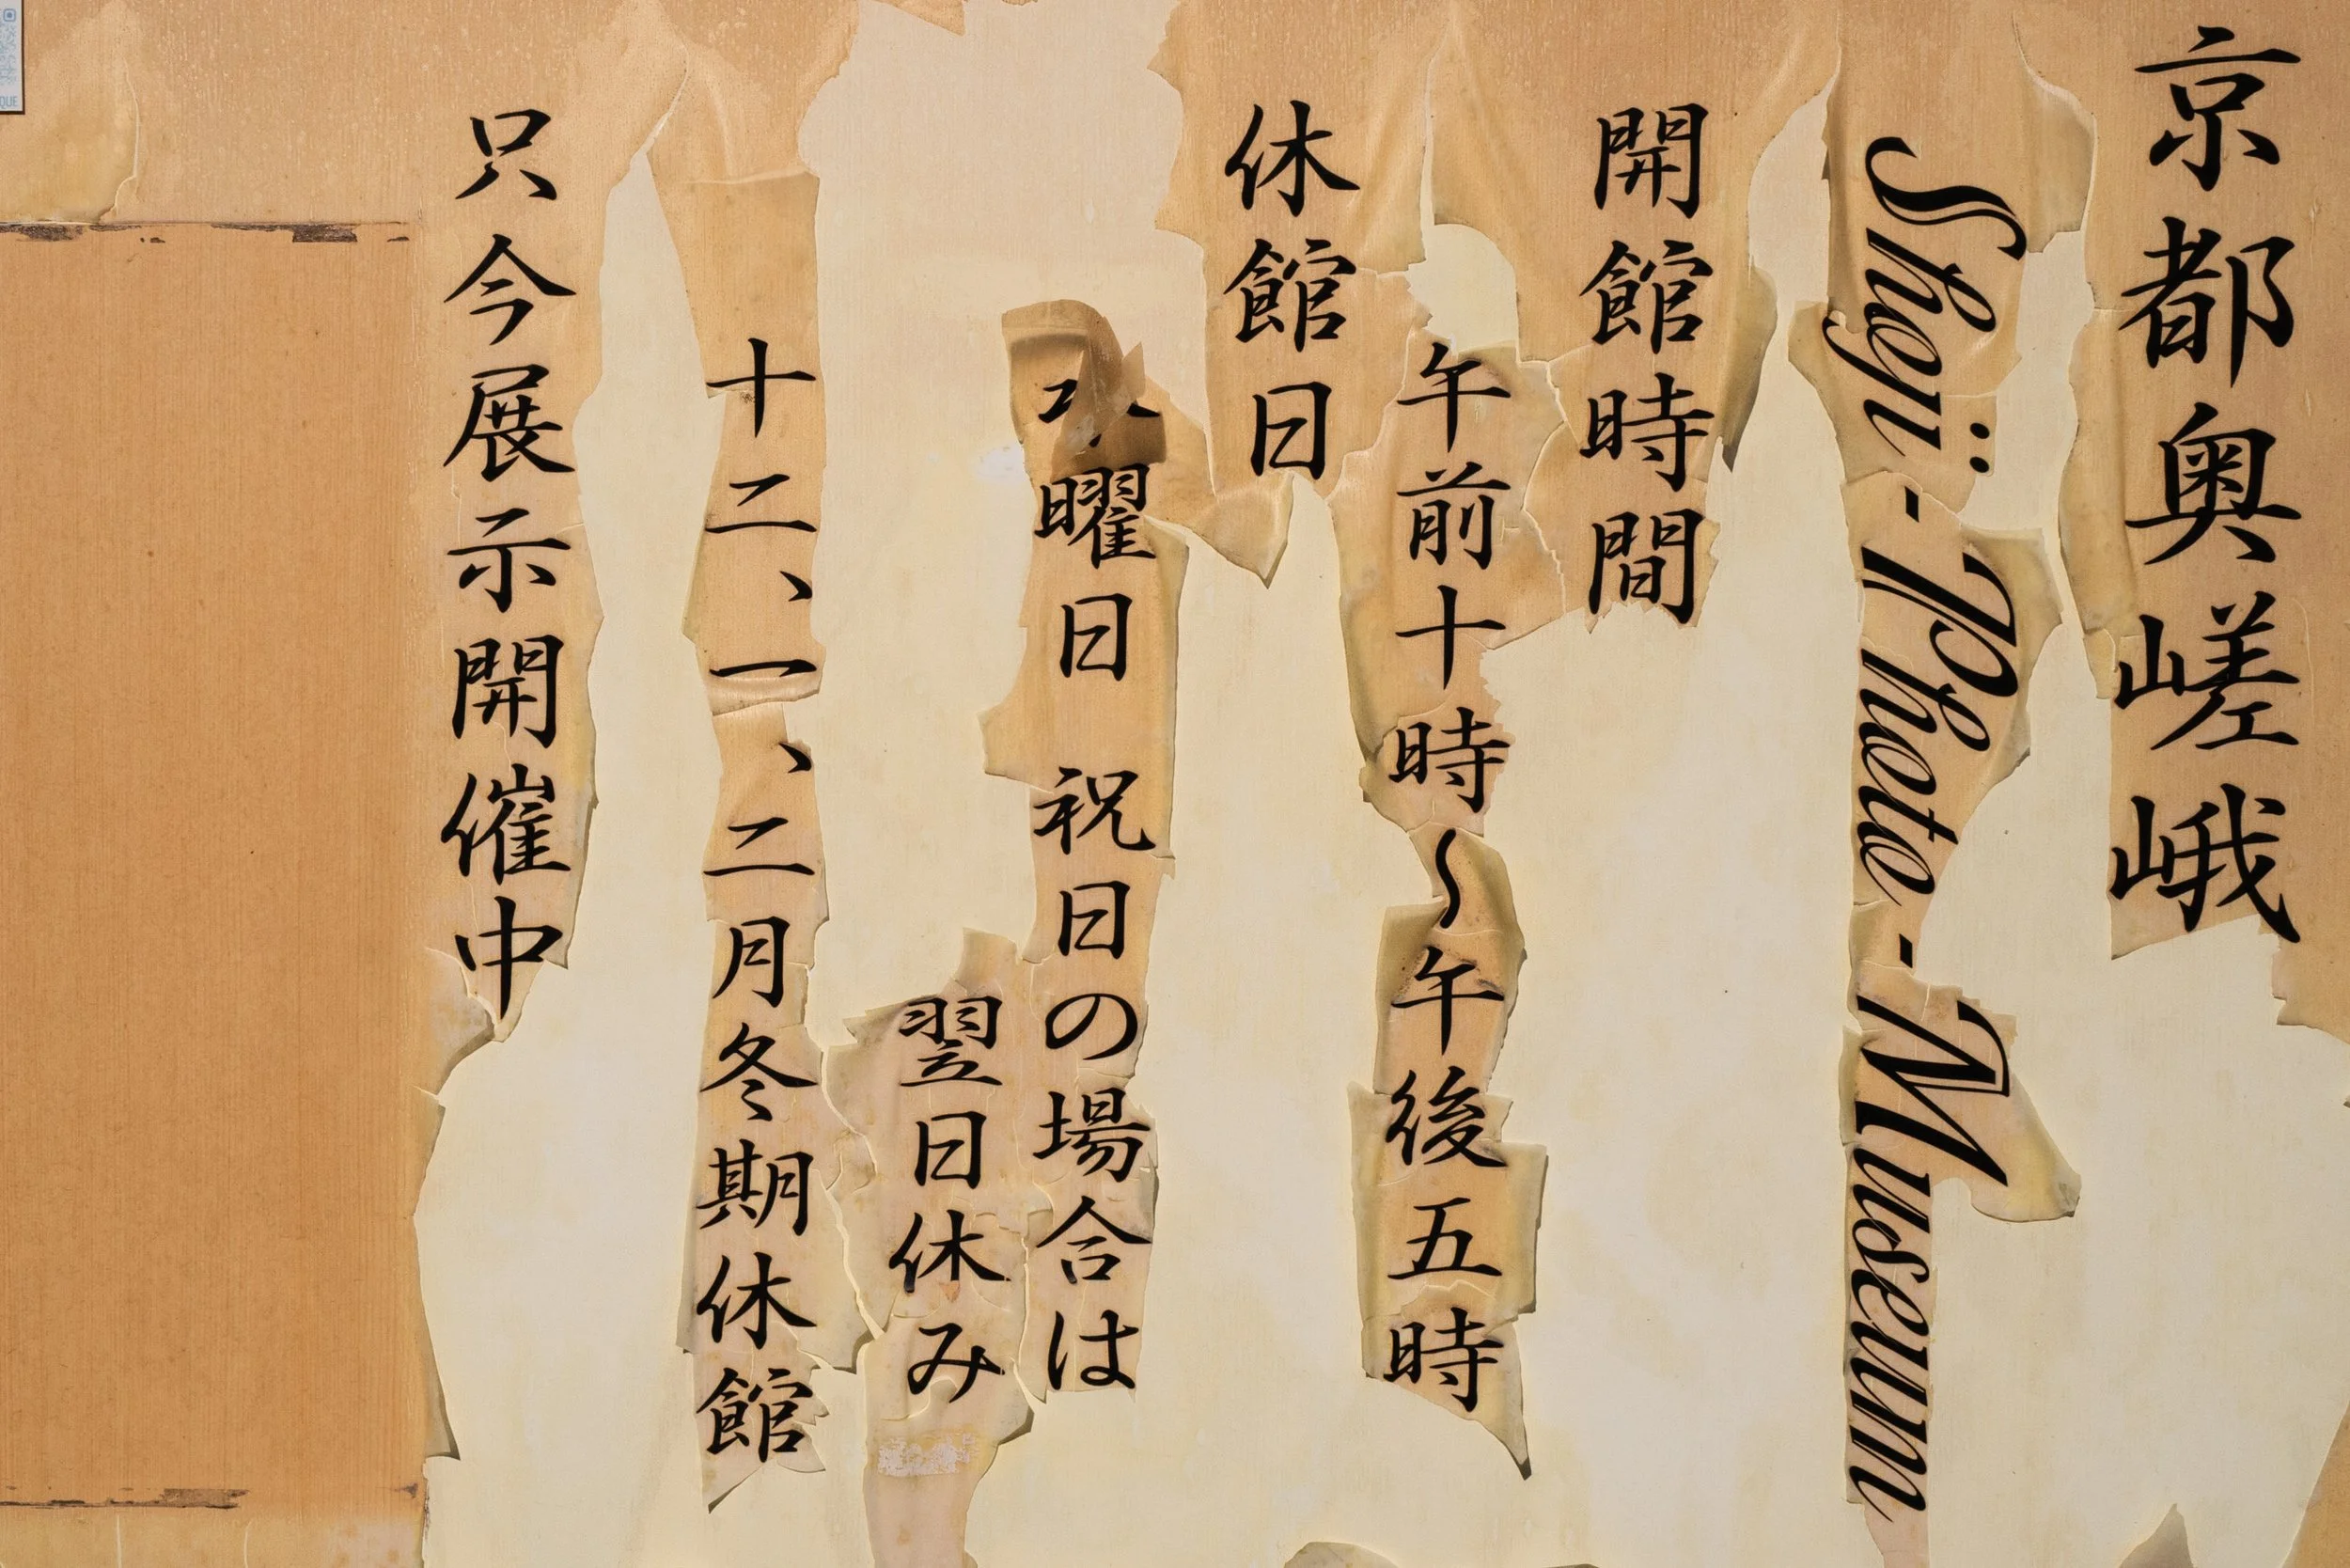 京都奥嵯峨
Shoji - Photo - Museum
開館時間
午前十時〜午後五時
休館日
曜日 祝日の場合は
翌日休み
十二、一、二月冬期休館
只今展示開催中
QUE